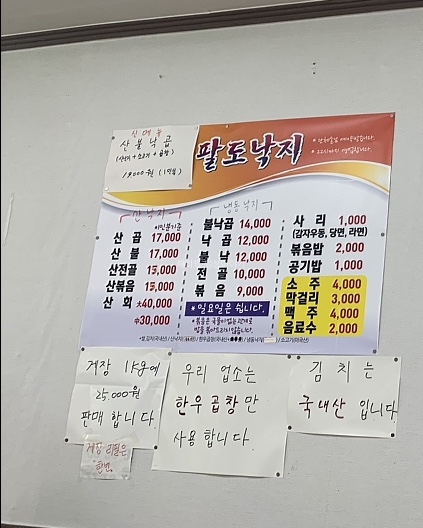 신메뉴
산불낙곱
(산낙지+소고기+곱창)
19000원 (1인분)
팔도낙지
산낙지
1인분기준
산 곱 17,000
산 불 17,000
산전골 15,000
산볶음 15,000
산 회 大40,000
中30,000
냉동낙지
불낙곱 14,000
낙 곱 12,000
불 낙 12,000
전 골 10,000
볶 음 9,000
*일요일은 쉽니다.
사 리 1,000
(감자우동, 당면, 라면)
볶음밥 2,000
공기밥 1,000
소 주 4,000
막걸리 3,000
맥 주 4,000
음료수 2,000
게장 1kg에
25,000원
판매 합니다.
게장 리필은
한번
우리 업소는
한우곱창만
사용 합니다.
김치는
국내산 입니다